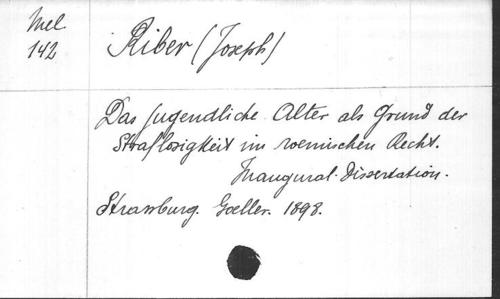 Mel.
142
Riber (Joseph)
Das jugendliche Alter als Grund der
Straflosigkeit im roemischen Recht.
Inaugural-Dissertation.
Strassburg. Goeller. 1898.